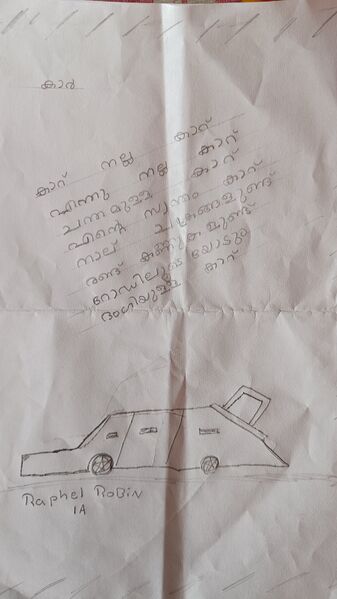 കാർ
കാറ് നല്ല കാറ്
എന്നു നല്ല കാറ്
ചന്തമുള്ള കാറ്
എന്റെ സ്വന്തം കാറ്
നാല് ചക്രങ്ങളുണ്ട്
രണ്ട് കണ്ണുകളുമുണ്ട്
റോഡിലൂടെ യോടും
ഭംഗിയുള്ള കാറ്
Raphel RoBiN
1A